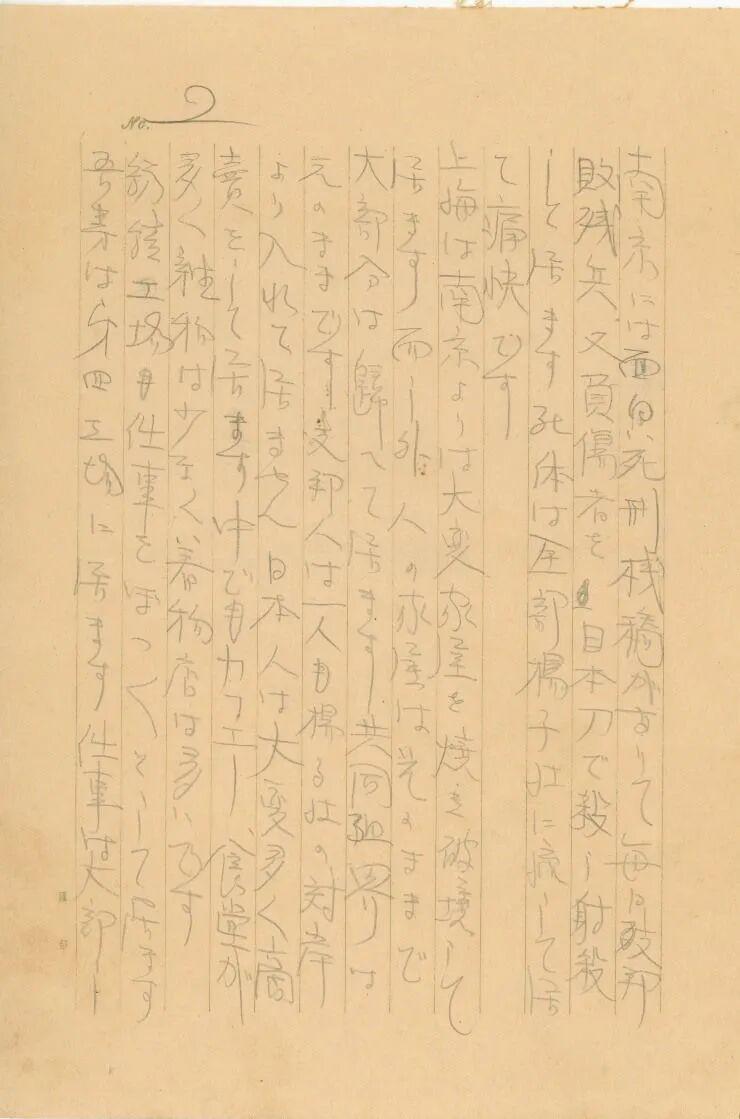 No. 2
南京には面白い死刑桟橋がありて毎日支那
敗残兵又負傷者を日本刀で殺し射殺
して居ます死体は全部揚子江に流して居
て痛快です
上海は南京よりは大変家屋を焼き破壊して
居ます而し外人の家屋は元のままで
大部分は歸へて居ます共同租界は
元のままです支那人は一人も揚子江の対岸
より入れて居ません日本人は大変多く商
賣をして居ます中でもカフエー食堂が
多く雑物は少なく着物店は多いです
紡績工場も仕事をぼつ〱として居ます
吾等は第四工場に居ます仕事は大部